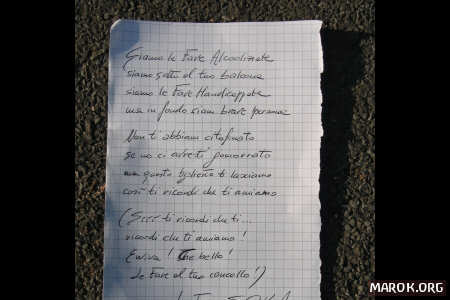 Siamo le Fave Alcoolizzate
siamo sotto al tuo balcone
siamo le Fave Handicappate
ma in fondo siam brave persone
Non ti abbiamo citofonato
se no ci avresti
questo biglietto ti lasciamo
così ti ricordi che ti amiamo
(Sììì ti ricordi che ti...
ricordi che ti amiamo!
Evviva! Che bello!
Le fave al tuo cancello!)
MAROK.ORG